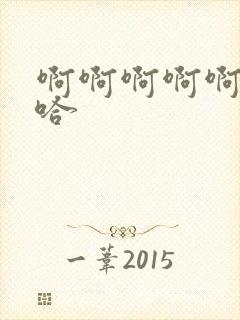 啊啊啊啊啊
哈
一苇2015